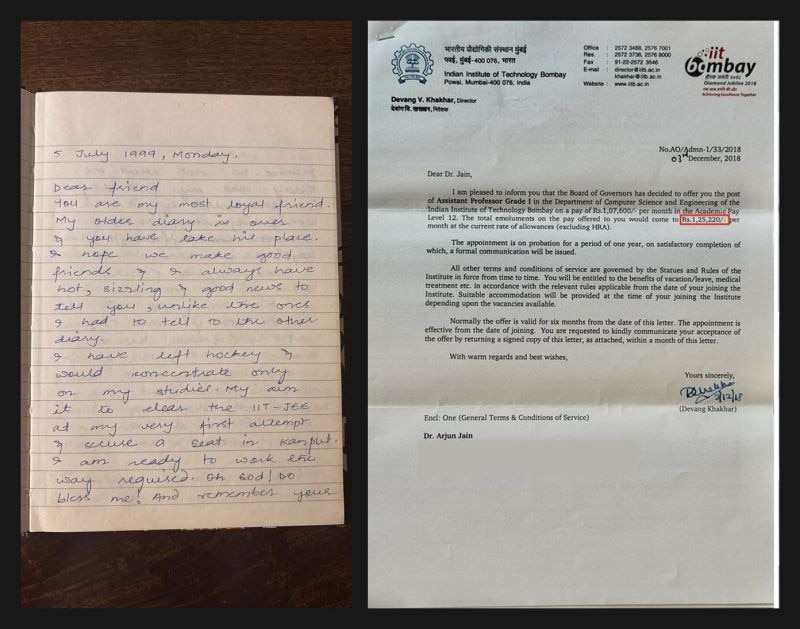 5 July 1999, Monday.
Dear friend
You are my most loyal friend.
My older diary is over
& you have take his place.
I hope we make good
friends & I always have
hot, sizzling & good news to
tell you, unlike the ones
I had to tell to the other
diary.
I have left hockey &
would concentrate only
on my studies. My aim
it to clear the IIT-JEE
at my very first attempt
& secure a seat in Kanpur.
I am ready to work the
way required. Oh God! Do
bless me! And remember your
भारतीय प्रौद्योगिकी संस्थान मुंबई
पवई, मुंबई-400 076, भारत
Indian Institute of Technology Bombay
Powai, Mumbai-400 076, India
Devang V. Khakhar, Director
देवांग वि. खख्खर, निदेशक
Office : 2572 3488, 2576 7001
Res. : 2572 3738, 2576 8000
Fax : 91-22-2572 3546
E-mail : director@iitb.ac.in
khakhar@iitb.ac.in
Website : www.iitb.ac.in
iit
bombay
Diamond Jubilee 2018
Achieving Excellence Together
No.AO/Admn-1/33/2018
03rd December, 2018
Dear Dr. Jain,
I am pleased to inform you that the Board of Governors has decided to offer you the post
of Assistant Professor Grade I in the Department of Computer Science and Engineering of the
Indian Institute of Technology Bombay on a pay of Rs.1,07,600/- per month in the Academic Pay
Level 12. The total emoluments on the pay offered to you would come to Rs.1,25,220/- per
month at the current rate of allowances (excluding HRA).
The appointment is on probation for a period of one year, on satisfactory completion of
which, a formal communication will be issued.
All other terms and conditions of service are governed by the Statues and Rules of the
Institute in force from time to time. You will be entitled to the benefits of vacation/leave, medical
treatment etc. in accordance with the relevant rules applicable from the date of your joining the
Institute. Suitable accommodation will be provided at the time of your joining the Institute
depending upon the vacancies available.
Normally the offer is valid for six months from the date of this letter. The appointment is
effective from the date of joining. You are requested to kindly communicate your acceptance
of the offer by returning a signed copy of this letter, as attached, within a month of this letter.
With warm regards and best wishes,
Yours sincerely,
3/12/18
(Devang Khakhar)
Encl: One (General Terms & Conditions of Service)
Dr. Arjun Jain